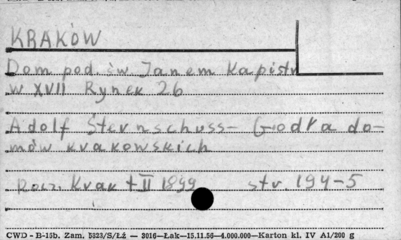 KRAKÓW
Dom pod. św Janem Kapistr
w XVII Rynek 26
Adolf Sternschuss - Godła do-
mów krakowskich
Rocz. Krak t II 1899 str. 194-5
CWD - B-15b. Zam. 5323/S/Łź — 3016—Łak—15.11.56—4.000.000—Karton kl. IV A1/200 g